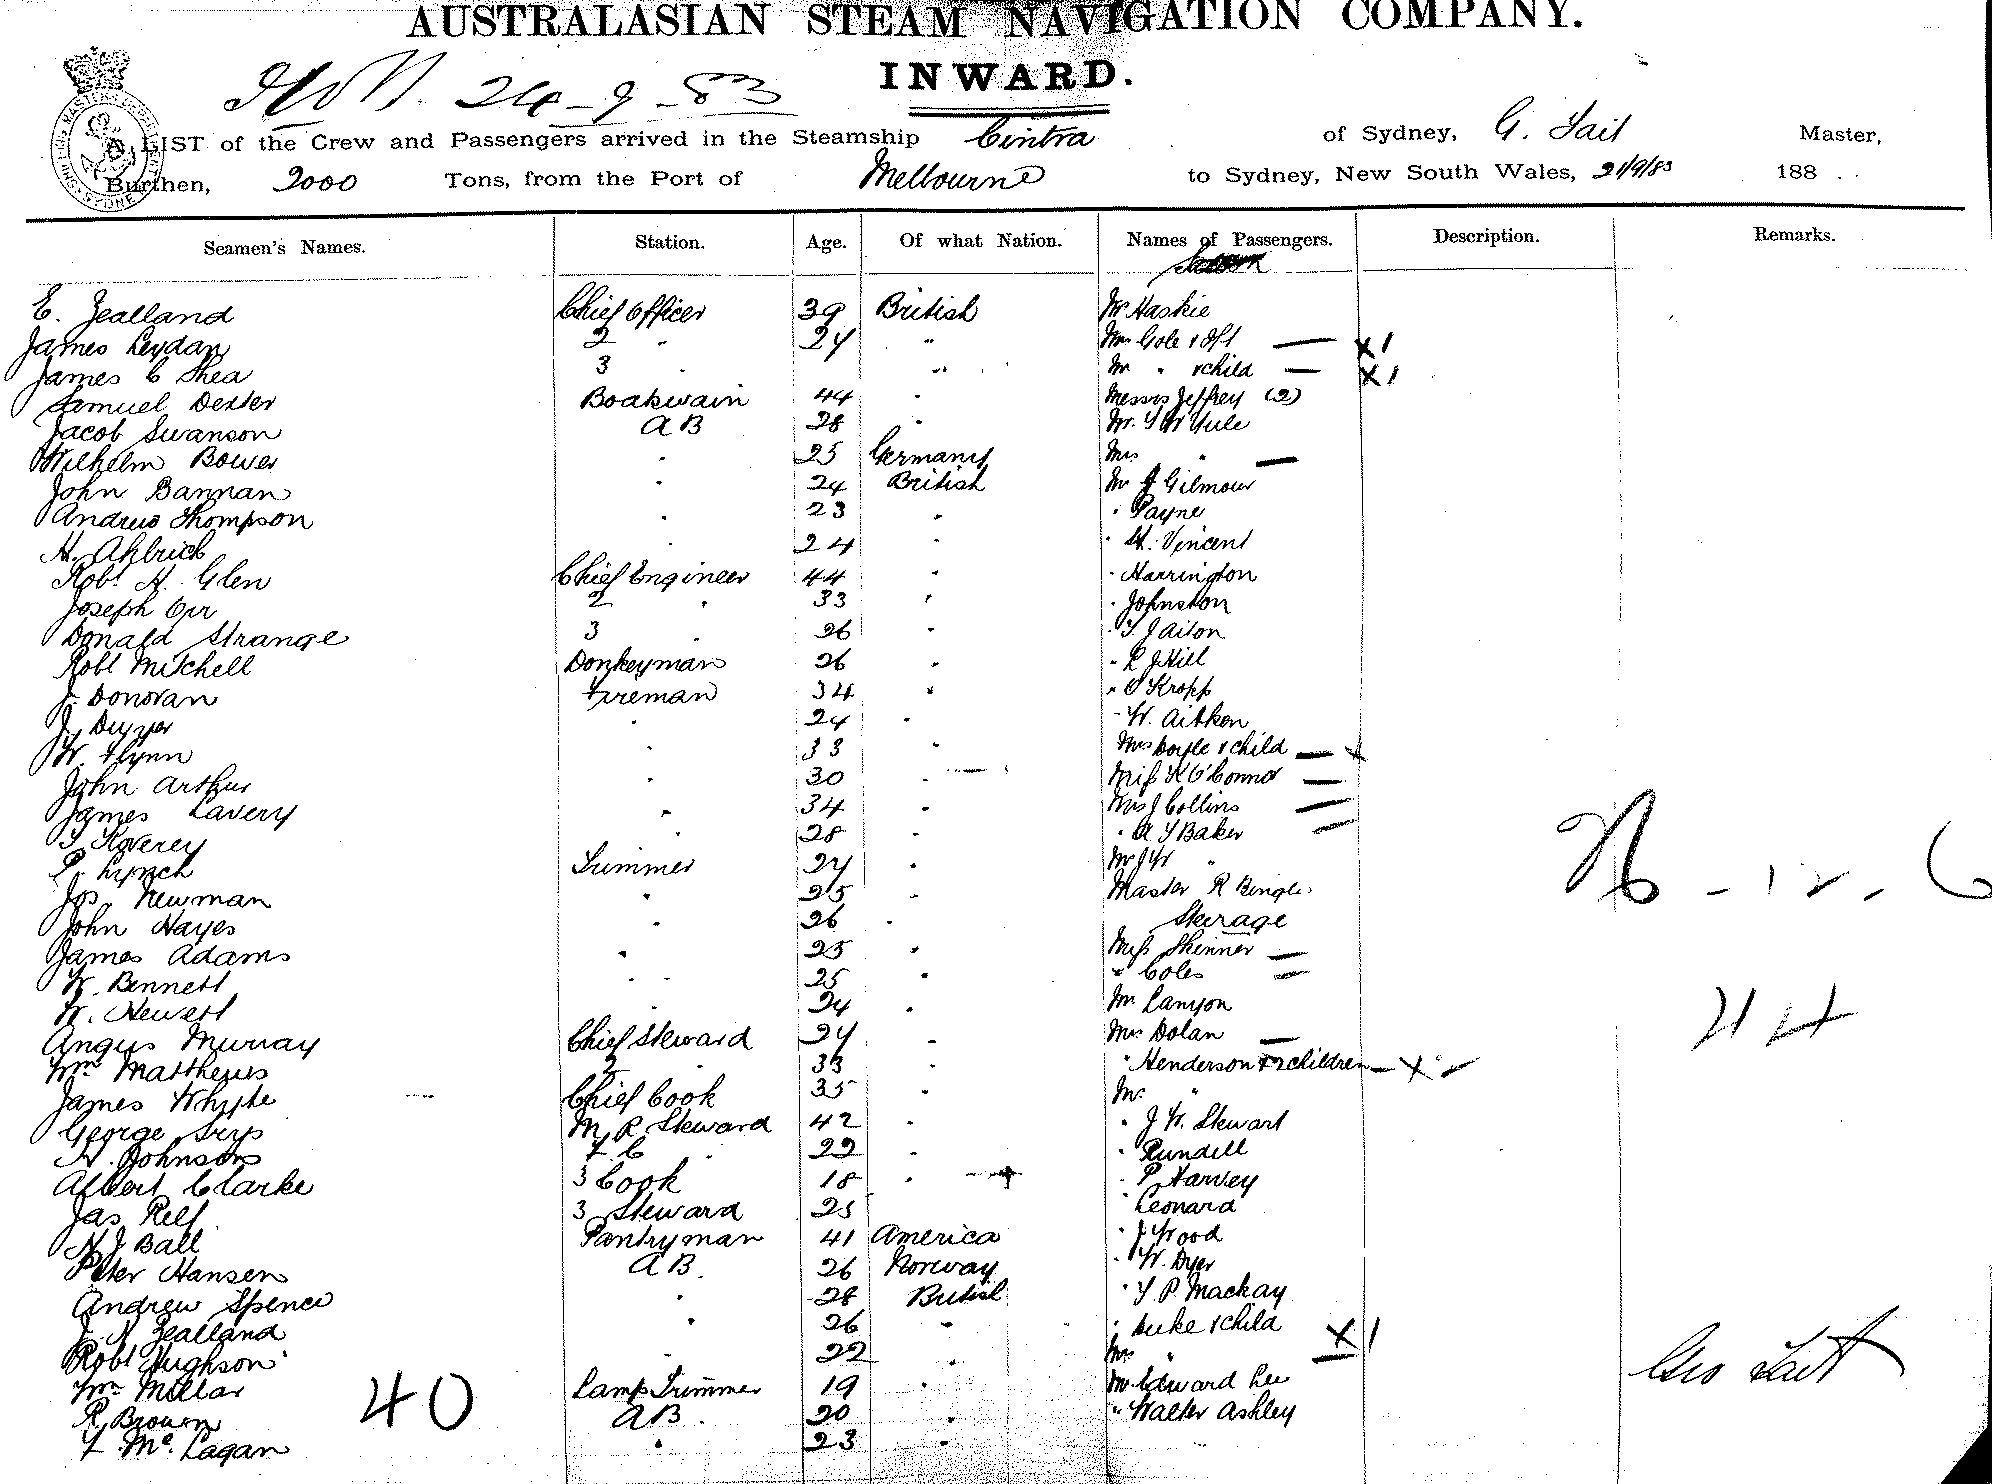 AUSTRALASIAN STEAM NAVIGATION COMPANY.
INWARD.
24-9-83
A LIST of the Crew and Passengers arrived in the Steamship Cintra of Sydney, G. Tait Master,
Burthen, 2000 Tons, from the Port of Melbourne to Sydney, New South Wales, 21/9/83 188 . .
Seamen's Names. Station. Age. Of what Nation. Names of Passengers. Description. Remarks.
E. Zealland Chief Officer 39 British Mr Haskie
James Leydan 2 " 24 " Mrs Cole & — X 1
James C Shea 3 " " Mr " & child — X 1
Samuel Dexter Boatswain 44 " Messrs Jeffrey (2)
Jacob Swanson A B 28 " Mr. Yule
Wilhelm Bower " 25 Germany Mrs " —
John Bannan " 24 British Mr J Gilmour
Andrew Thompson " 23 " " Payne
H. Ahlrich " 24 " " St. Vincent
Robt. H. Glen Chief Engineer 44 " " Harrington
Joseph Orr 2 " 33 " " Johnston
Donald Strange 3 " 26 " " T J Aiton
Robt Mitchell Donkeyman 26 " " R J Hill
J. Donovan Fireman 34 " " C Kropp
J. " 24 " " W. Aitken
W. Flynn " 33 " Mrs Doyle & child — X
John Arthur " 30 " Miss K O'Connor —
James Lavery " 34 " Mrs J Collins —
" 28 " " A Y Baker —
P. Lynch Trimmer 24 " Mr J W "
Jos. Newman " 25 " Master R Bingle
John Hayes 26 " Steerage
James Adams " 25 " Miss Skinner —
W. Bennett " 25 " " Coles —
W. Hewett " 24 " Mr Lanyon
Angus Murray Chief Steward 24 " Mrs Dolan —
Wm. Matthews 2 " 33 " " Henderson & 2 children — X 2
James Whyte Chief Cook 35 " Mr. "
George M R Steward 42 " " J W. Stewart
H. Johnson F C 22 " " Rundell
Albert Clarke 3 Cook 18 " " P Harvey
Jas Relf 3 Steward 25 " Leonard
H J Ball Pantryman 41 America " J Wood
Peter Hansen A B. 26 Norway " W. Dyer
Andrew Spence " 28 British " Y P Mackay
J. N Zealland " 26 " " Duke & child X 1
Robt Hughson " 22 " Mrs " —
Wm. Millar Lamp Trimmer 19 " Mr. Edward Lee
R. Brown A B. 20 " " Walter Ashley
Mc. Lagan " 23 "
40
44
Geo Tait